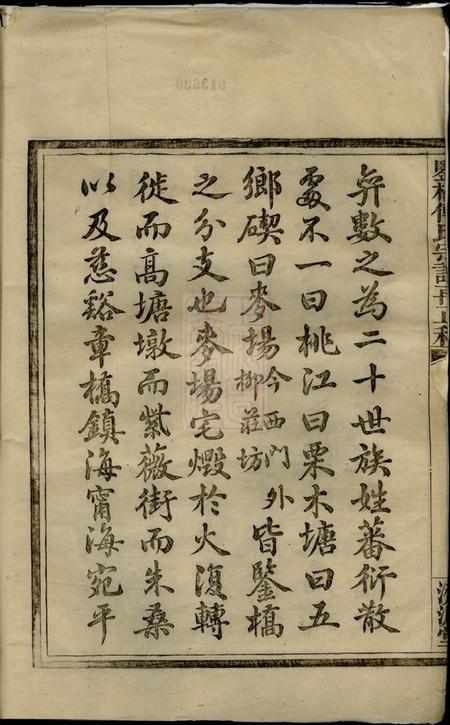 弁數之為二十世族姓蕃衍散
處不一曰桃江曰栗木塘曰五
鄉碶曰麥場今西門外柳莊坊皆鑒橋
之分支也麥場宅燬於火復轉
徙而高塘墩而紫薇街而朱桑
以及慈谿章橋鎮海甯海宛平